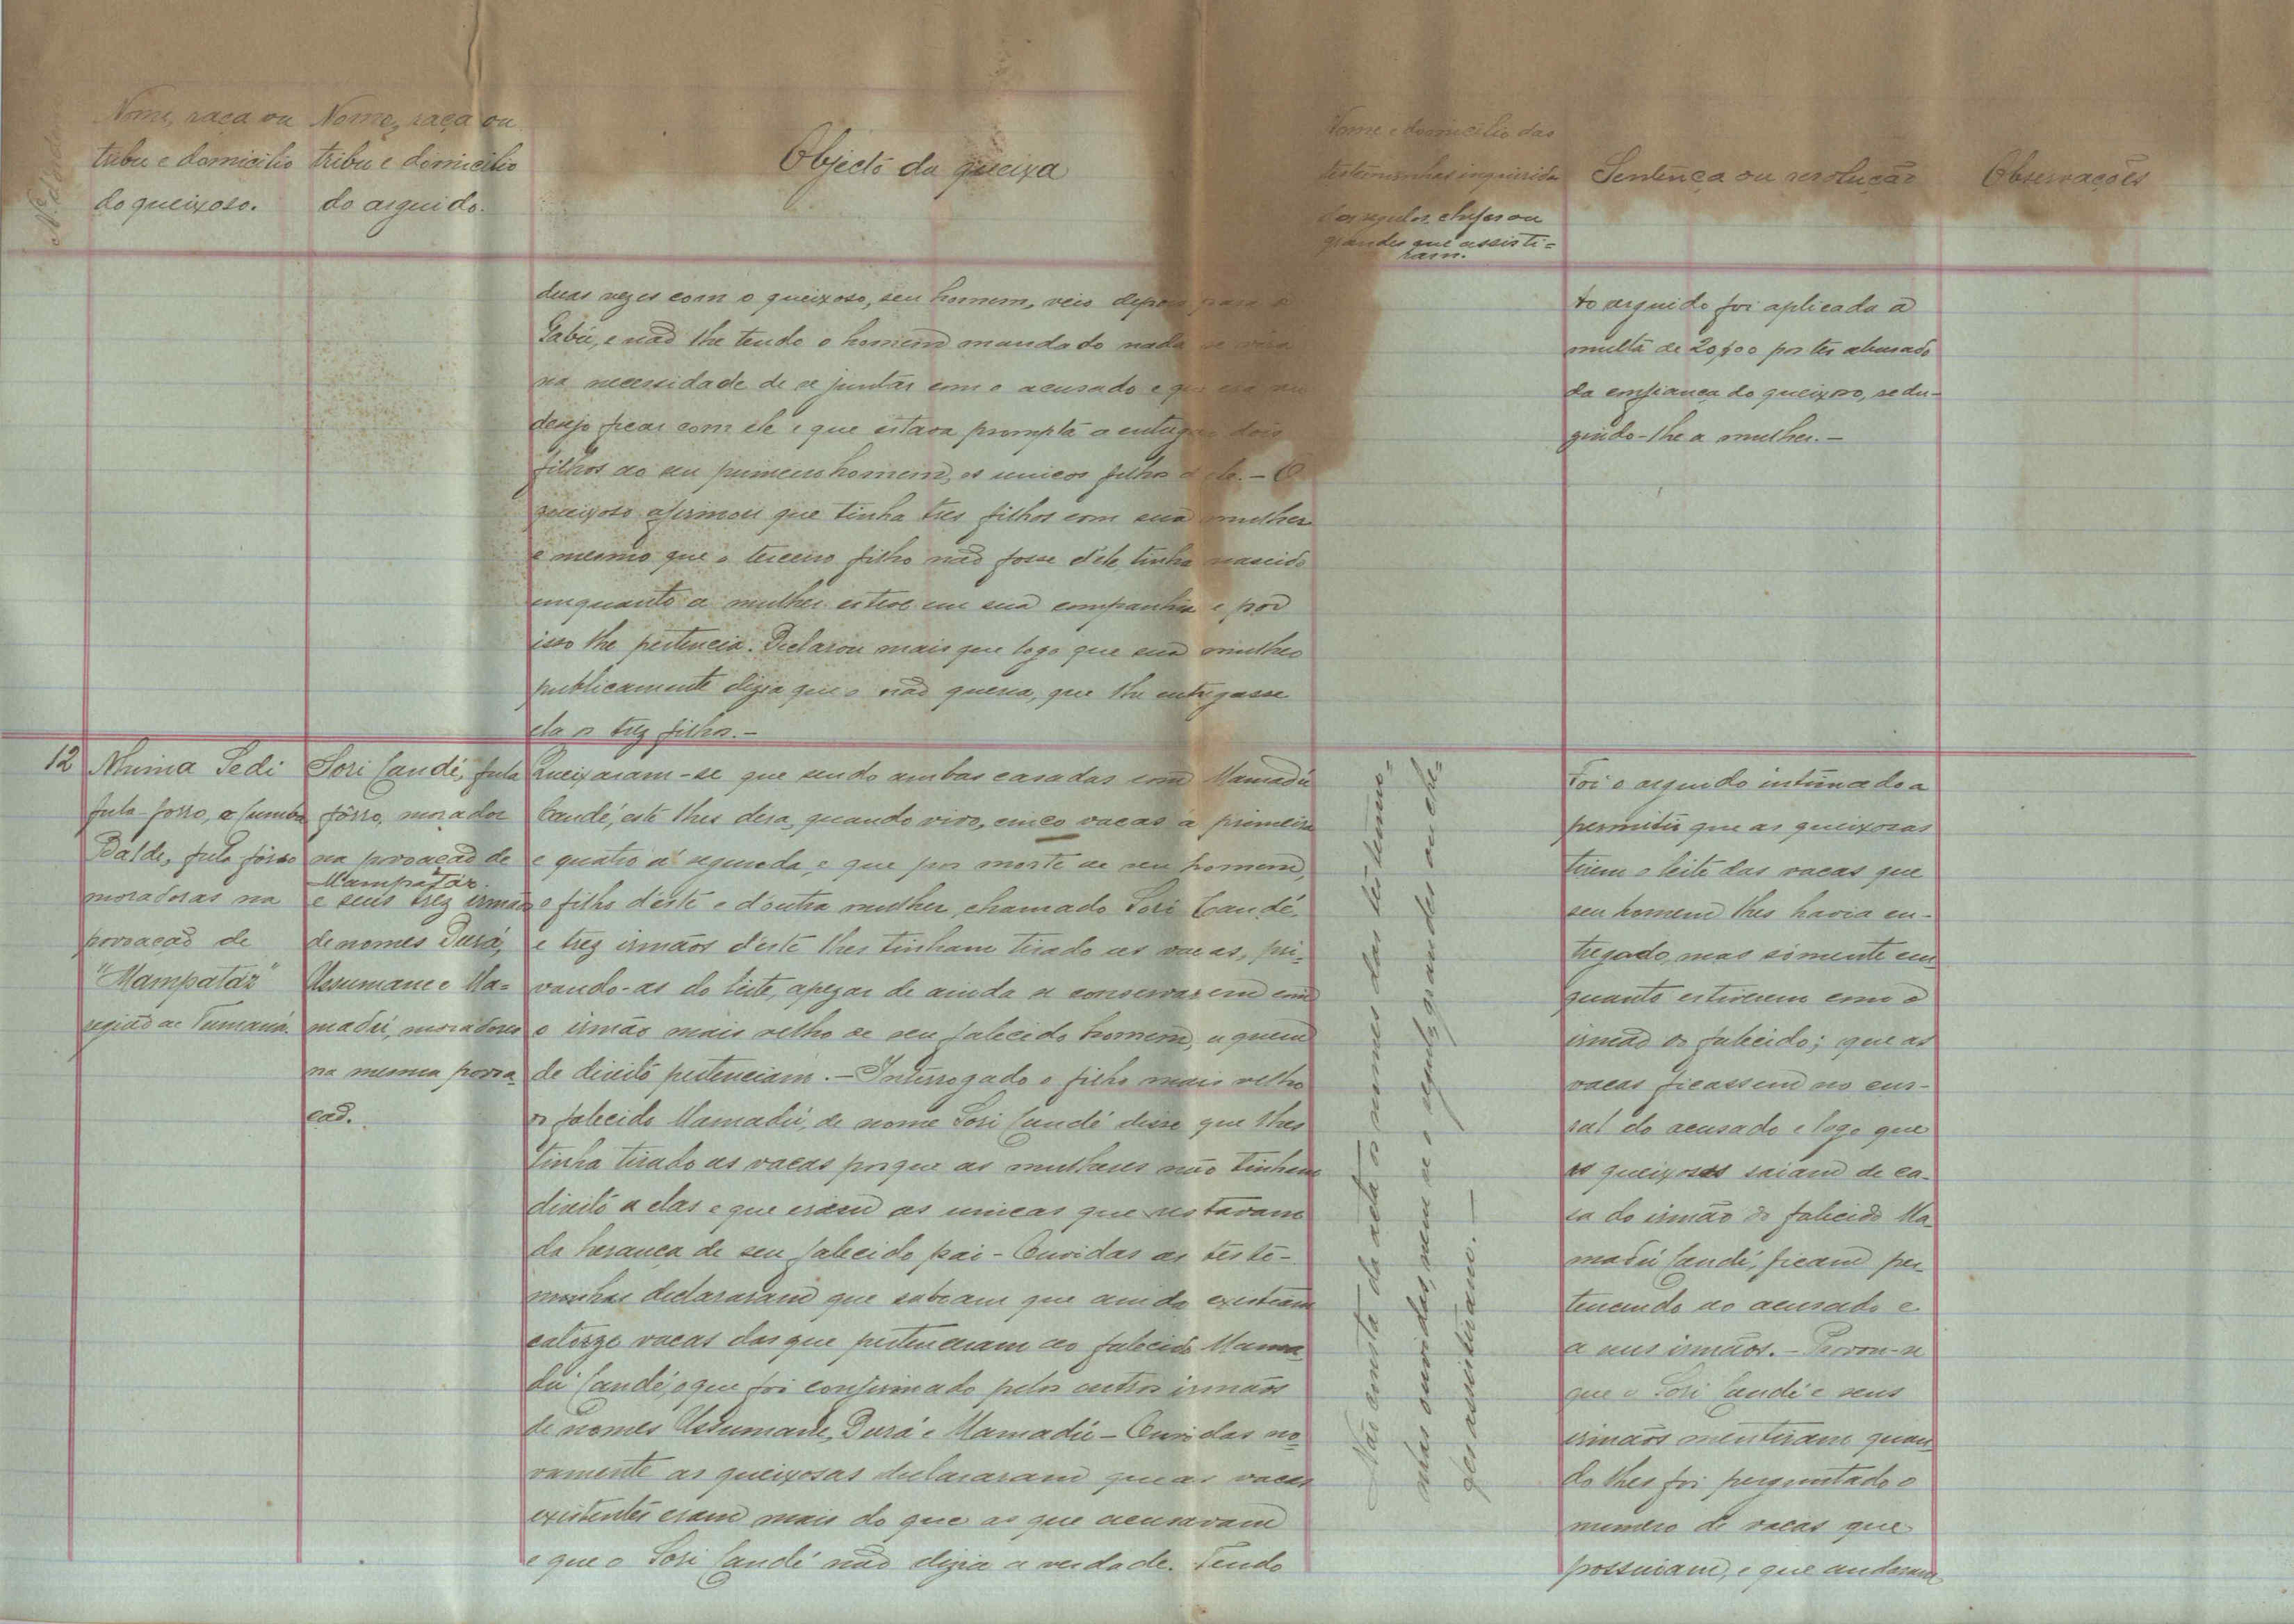 Nº d'ordem
Nome, raça ou
tribu e domicilio
do queixoso.
Nome, raça ou
tribu e domicilio
do arguido.
Objecto da queixa
Nome e domicilio das
testemunhas inquirida
dos regulos, chefes ou
grandes que assisti=
ram.
Sentença ou resolução
Observações
duas vezes com o queixoso, seu homem, veio depois para o
Gabú, e não lhe tendo o homem mandado nada se vira
na necessidade de se juntar com o acusado e que era seu
desejo ficar com ele e que estava prompta a entregar dois
filhos ao seu primeiro homem, os unicos filhos d'ele. - O
queixoso afirmou que tinha tres filhos com sua mulher
e mesmo que o terceiro filho não fosse d'ele, tinha nascido
emquanto a mulher esteve em sua companhia e por
isso lhe pertencia. Declarou mais que logo que sua mulher
publicamente dizia que o não queria, que lhe entregasse
ela os trez filhos. -
to arguido foi aplicada a
multa de 20$00 por ter abusado
da confiança do queixoso, sedu-
zindo-lhe a mulher. -
12
Nhima Sedi
fula-forro, e Cumba
Balde, fula fôrro
moradoras na
povoação de
"Mampatáz"
região de Tumaná.
Sori Candé, fula
fôrro, morador
na povoação de
Mampatáz.
e seus trez irmãos
de nomes Durá,
Ussumane e Ma=
madú, moradores
na mesma povoa
ção.
Queixaram-se que sendo ambas casadas com Mamadú
Candé, este lhes dera, quando vivo, cinco vacas á primeira
e quatro á segunda, e que por morte de seu homem,
o filho d'este e d'outra mulher, chamado Sori Candé,
e trez irmãos d'este lhes tinham tirado as vacas, pri-
vando-as do leite, apezar de ainda se conservarem com
o irmão mais velho de seu falecido homem, a quem
de direito pertenciam. - Interrogado o filho mais velho
do falecido Mamadú, de nome Sori Candé disse que lhes
tinha tirado as vacas porque as mulheres não tinham
direito a elas e que eram as unicas que restavam
da herança de seu falecido pai - Ouvidas as teste-
munhas declararam que sabiam que ainda existiam
catorze vacas das que pertenceram ao falecido Mama-
dú Candé, o que foi confirmado pelos outros irmãos
de nomes Ussumane, Durá e Mamadú - Ouvidas no-
vamente as queixosas declararam que as vacas
existentes eram mais do que as que acusavam
e que o Sori Candé não dizia a verdade. Tendo
Não consta da acta os nomes das testemu=
nhas ouvidas, nem se o regulo, grandes ou che=
fes assistiram. -
Foi o arguido intimado a
permitir que as queixosas
tirem o leite das vacas que
seu homem lhes havia en-
tregado, mas sómente em
quanto estiverem com o
irmão do falecido; que as
vacas ficassem no cur-
ral do acusado e logo que
as queixosas saiam de ca-
sa do irmão do falecido Ma-
madú Candé, ficam per-
tencendo ao acusado e
a seus irmãos. - Provou-se
que o Sori Candé e seus
irmãos mentiram quan-
do lhes foi perguntado o
numero de vacas que
possuiam, e que andaram